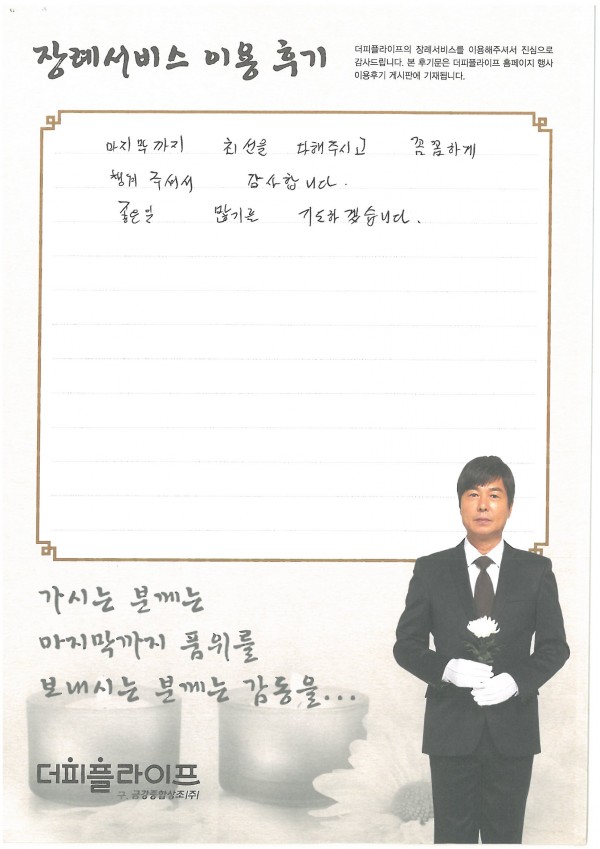 장례서비스 이용 후기
더피플라이프의 장례서비스를 이용해주셔서 진심으로
감사드립니다. 본 후기문은 더피플라이프 홈페이지 행사
이용후기 게시판에 기재됩니다.
마지막까지 최선을 다해주시고 꼼꼼하게
챙겨 주셔서 감사합니다.
좋은일 많기를 기도하겠습니다.
가시는 분께는
마지막까지 품위를
보내시는 분께는 감동을...
더피플라이프
구. 금강종합상조(주)